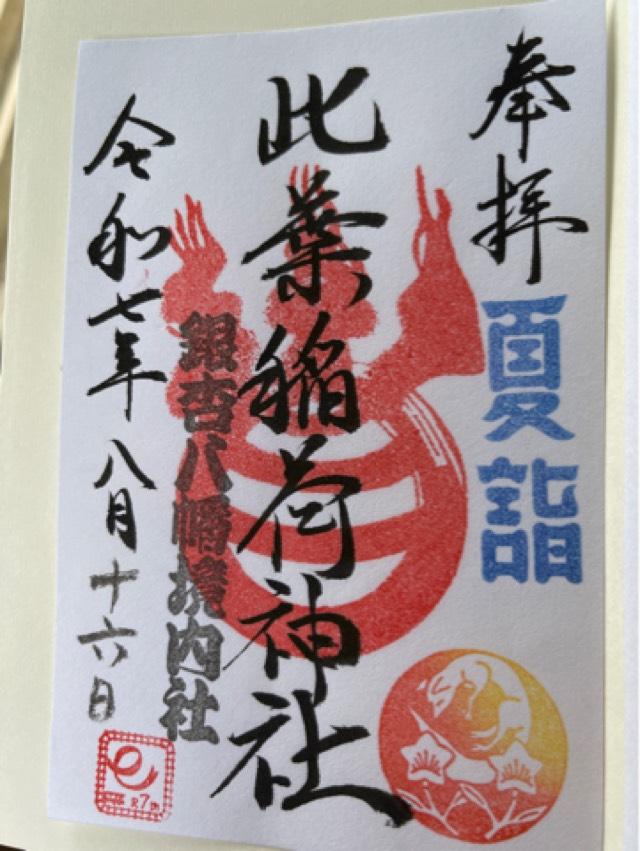 奉拝
夏詣
此葉稲荷神社
銀杏八幡境内社
令和七年八月十六日
R7